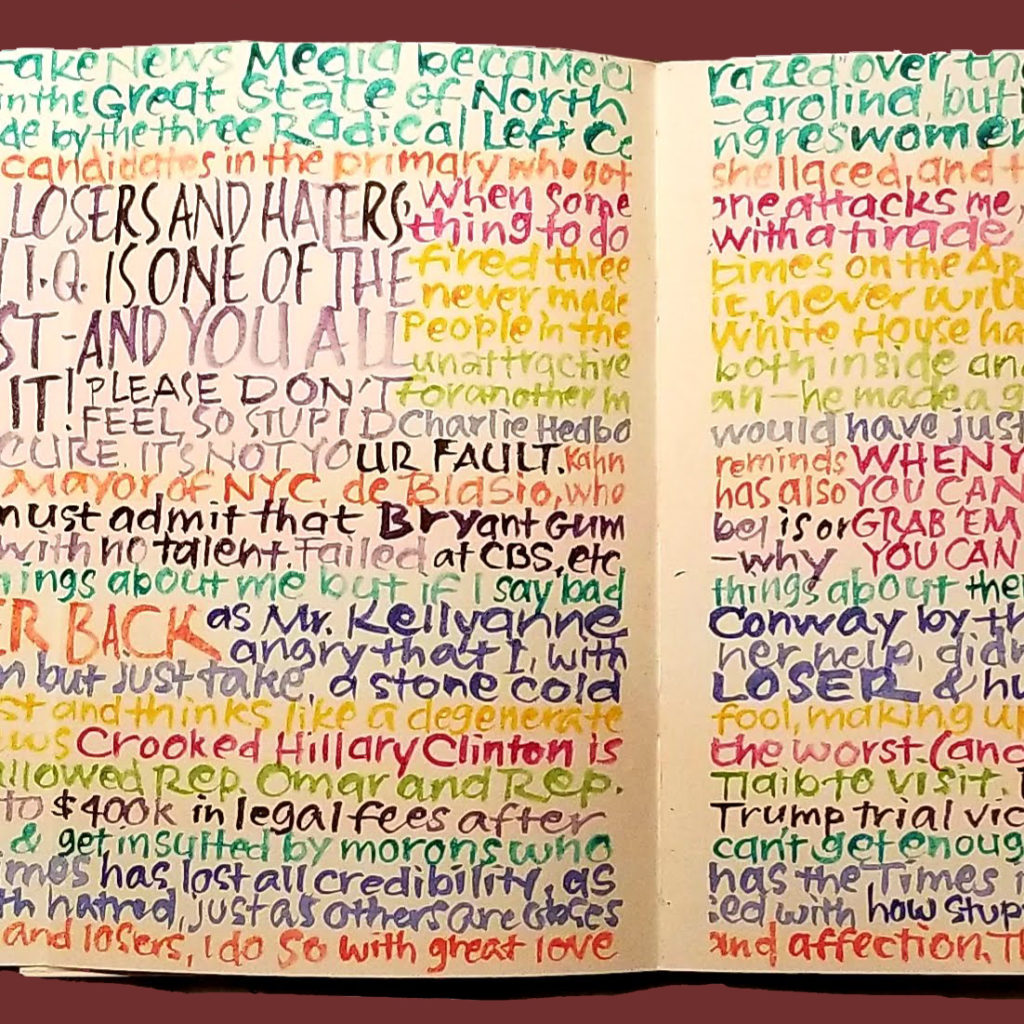 ake News Media became "c razed" over the
in the Great State of North Carolina, but
de by the three Radical Left Co ngreswomen
candidates in the primary who got shellaced, and
LOSERS AND HATERS, When some one attacks me,
thing to do with a tirade
I.Q. IS ONE OF THE fired three times on the Ap
never made it, never with
ST-AND YOU ALL People in the White House ha
unattractive both inside an
IT! PLEASE DON'T for another m an - he made a g
FEEL SO STUPID Charlie Hedbo would have just
CURE. IT'S NOT YOUR FAULT. Kahn reminds WHEN Y
Mayor of NYC, de Blasio, who has also YOU CAN
must admit that Bryant Gum bel is or GRAB 'EM
with no talent. Failed at CBS, etc -why YOU CAN
hings about me but if I say bad things about the
ER BACK as Mr. Kellyanne Conway by th
angry that I, with her help, didn
but just take, a stone cold LOSER & hu
st and thinks like a degenerate fool, making up
ews Crooked Hillary Clinton is the worst (and
llowed Rep. Omar and Rep. Tlaib to visit.
to $400k in legal fees after Trump trial vic
& get insulted by morons who can't get enoug
imes has lost all credibility, as has the Times
th hatred, just as others are obsess ed with how stup
and losers, I do so with great love and affection. Th